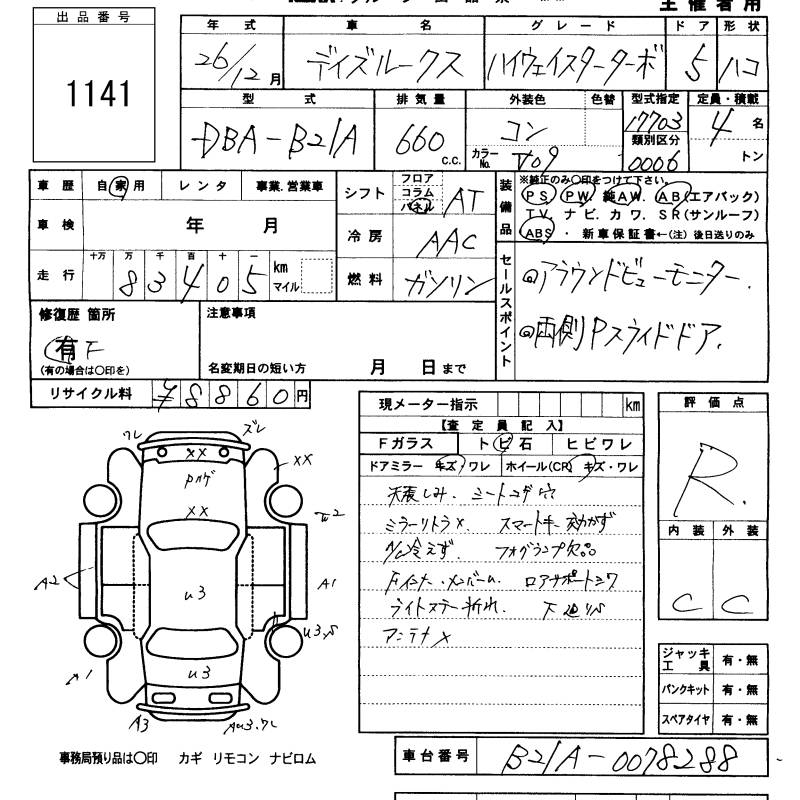 主催者用
出品番号
1141
年式 車名 グレード ドア 形状
26/12月 デイズルークス ハイウェイスターターボ 5 ハコ
型式 排気量 外装色 色替 型式指定 定員・積載
DBA-B21A 660 C.C. コン カラーNo. V09 17703 4名
類別区分
0006 トン
車歴 自家用 レンタ 事業.営業車
シフト フロア コラム パネル AT
装備品 ※純正のみ○印をつけて下さい。
PS. PW. 純AW. AB(エアバック)
TV. ナビ. カワ. SR(サンルーフ)
ABS ・ 新車保証書←(注)後日送りのみ
車検 年 月
冷房 AAC
走行 十万 万 千 百 十 一
83405 km マイル
燃料 ガソリン
セールスポイント
◎アラウンドビューモニター.
◎両側Pスライドドア.
修復歴 箇所
有 F
(有の場合は○印を)
注意事項
名変期日の短い方 月 日まで
リサイクル料 ¥8860円
現メーター指示 km
【査定員記入】
Fガラス トビ石 ヒビワレ
ドアミラー キズ・ワレ ホイール(CR) キズ・ワレ
天張しみ. シートコゲ穴
ミラーリトラ×. スマートキー効かず
A/C冷えず. フォグランプ欠品
Fインナー・メンバーム. ロアサポートシワ
ライトステー折れ. 下廻りS
アンテナ×
評価点
R.
内装 外装
C C
ワレ ズレ
××
Pカゲ
××
××
A2
u3
A1
u3.S
A1
u3
A3
Au3.ワレ
ジャッキ工具 有・無
パンクキット 有・無
スペアタイヤ 有・無
事務局預り品は○印 カギ リモコン ナビロム
車台番号 B21A-0078288